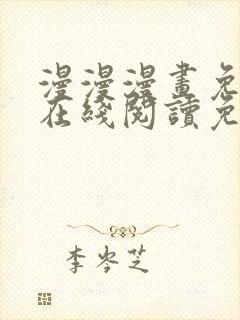 漫漫漫畫免
在綫閱讀免
李岑芝